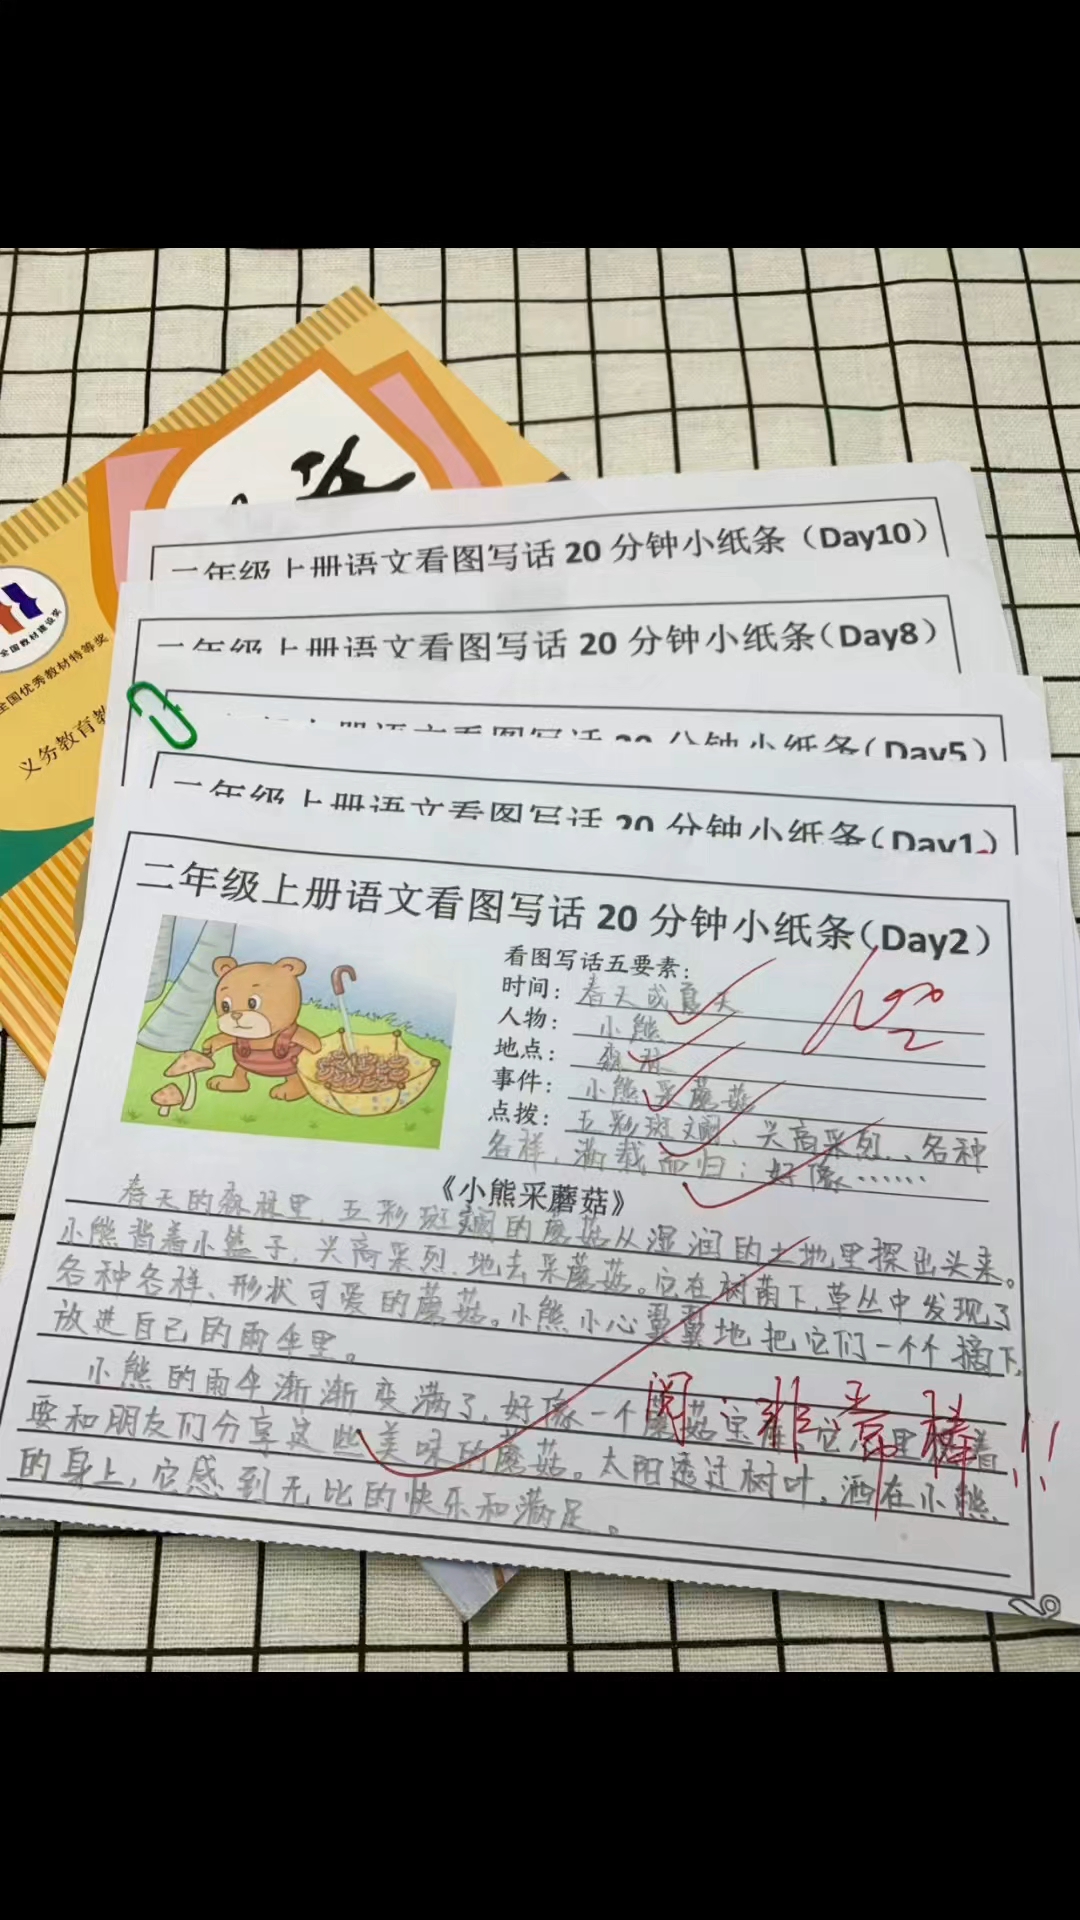 全国教材建设奖
全国优秀教材特等奖
义务教育教
二年级上册语文看图写话 20 分钟小纸条（Day10）
二年级上册语文看图写话 20 分钟小纸条（Day8）
上册语文看图写话 20 分钟小纸条（Day5）
二年级上册语文看图写话 20 分钟小纸条（Day1）
二年级上册语文看图写话 20 分钟小纸条（Day2）
看图写话五要素：
时间：春天或夏天
人物：小熊
地点：森林
事件：小熊采蘑菇
点拨：五彩斑斓、兴高采烈、各种
各样、满载而归；好像……
100
《小熊采蘑菇》
春天的森林里，五彩斑斓的蘑菇从湿润的土地里探出头来。
小熊背着小篮子，兴高采烈地去采蘑菇。它在树荫下，草丛中发现了
各种各样、形状可爱的蘑菇。小熊小心翼翼地把它们一个个摘下，
放进自己的雨伞里。
小熊的雨伞渐渐变满了，好像一个蘑菇宝 它 里 着
要和朋友们分享这些美味的蘑菇。太阳透过树叶，洒在小熊
的身上，它感到无比的快乐和满足。
阅：非常棒!!